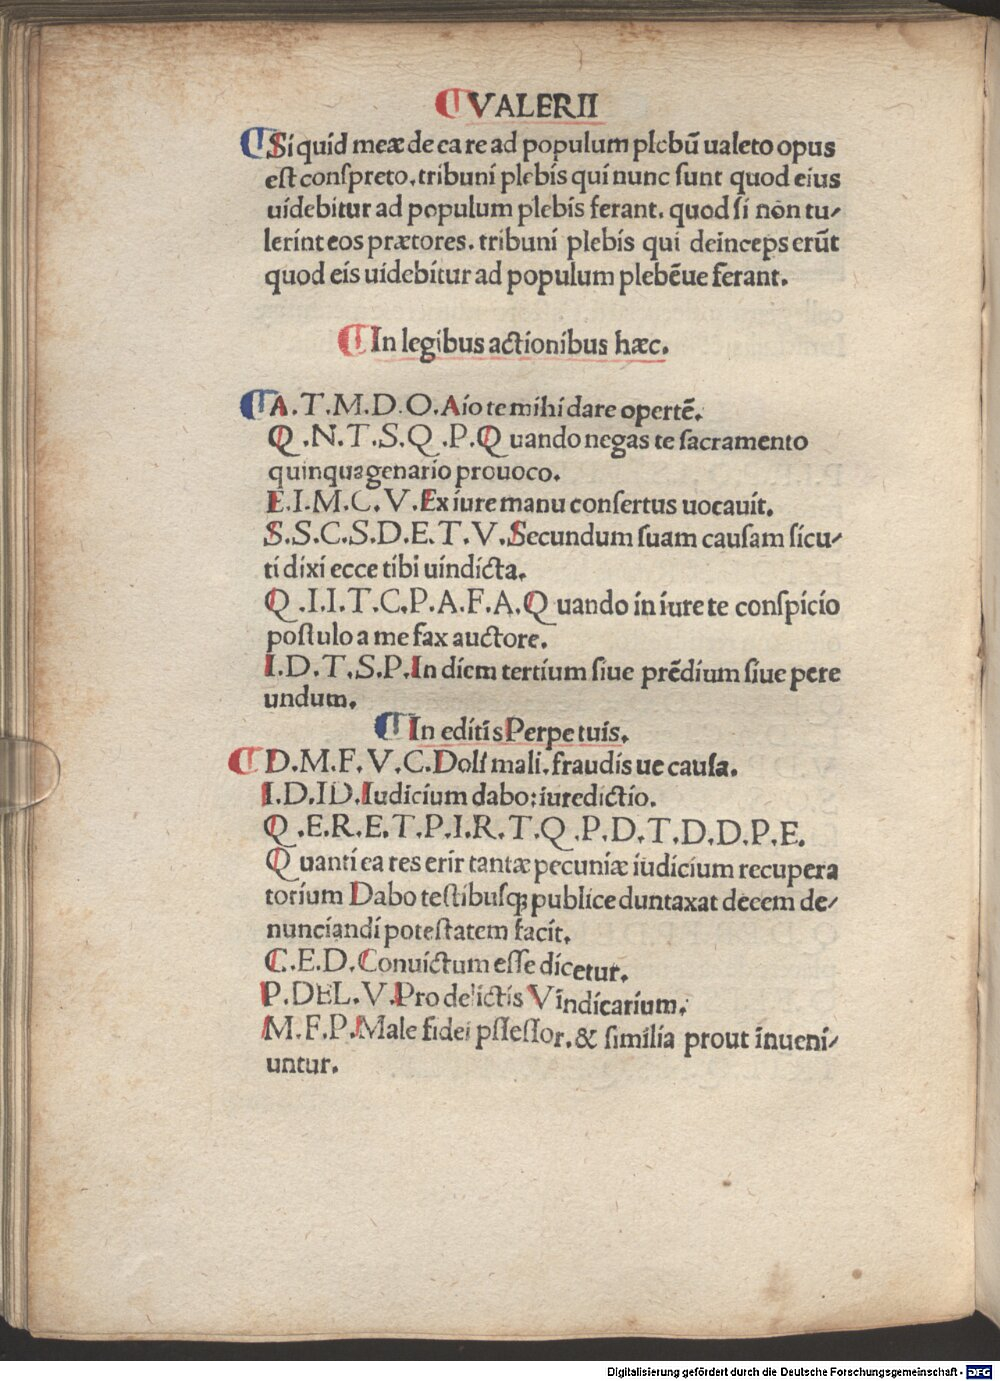 VALERII
Si quid meæ de ea re ad populum plebū ualeto opus
est conspreto. tribuni plebis qui nunc sunt quod eius
uidebitur ad populum plebis ferant. quod si non tu-
lerint eos prætores. tribuni plebis qui deinceps erūt
quod eis uidebitur ad populum plebēue ferant.
In legibus actionibus hæc.
A.T.M.D.O.Aio te mihi dare opertē.
Q.N.T.S.Q.P.Quando negas te sacramento
quinquagenario prouoco.
E.I.M.C.V.Ex iure manu consertus uocauit.
S.S.C.S.D.E.T.V.Secundum suam causam sicu-
ti dixi ecce tibi uindicta.
Q.I.I.T.C.P.A.F.A.Quando in iure te conspicio
postulo a me fax auctore.
I.D.T.S.P.In diem tertium siue prēdium siue pere
undum.
In editis Perpetuis.
D.M.F.V.C.Doli mali. fraudis ue causa.
I.D.ID.Iudicium dabo: iuredictio.
Q.E.R.E.T.P.I.R.T.Q.P.D.T.D.D.P.E.
Quanti ea res erir tantæ pecuniæ iudicium recupera
torium Dabo testibusqꝫ publice duntaxat decem de-
nunciandi potestatem facit.
C.E.D.Conuictum esse dicetur.
P.DEL.V.Pro delictis Vindicarium.
M.F.P.Male fidei pssessor. & similia prout inueni-
untur.
Digitalisierung gefördert durch die Deutsche Forschungsgemeinschaft - DFG